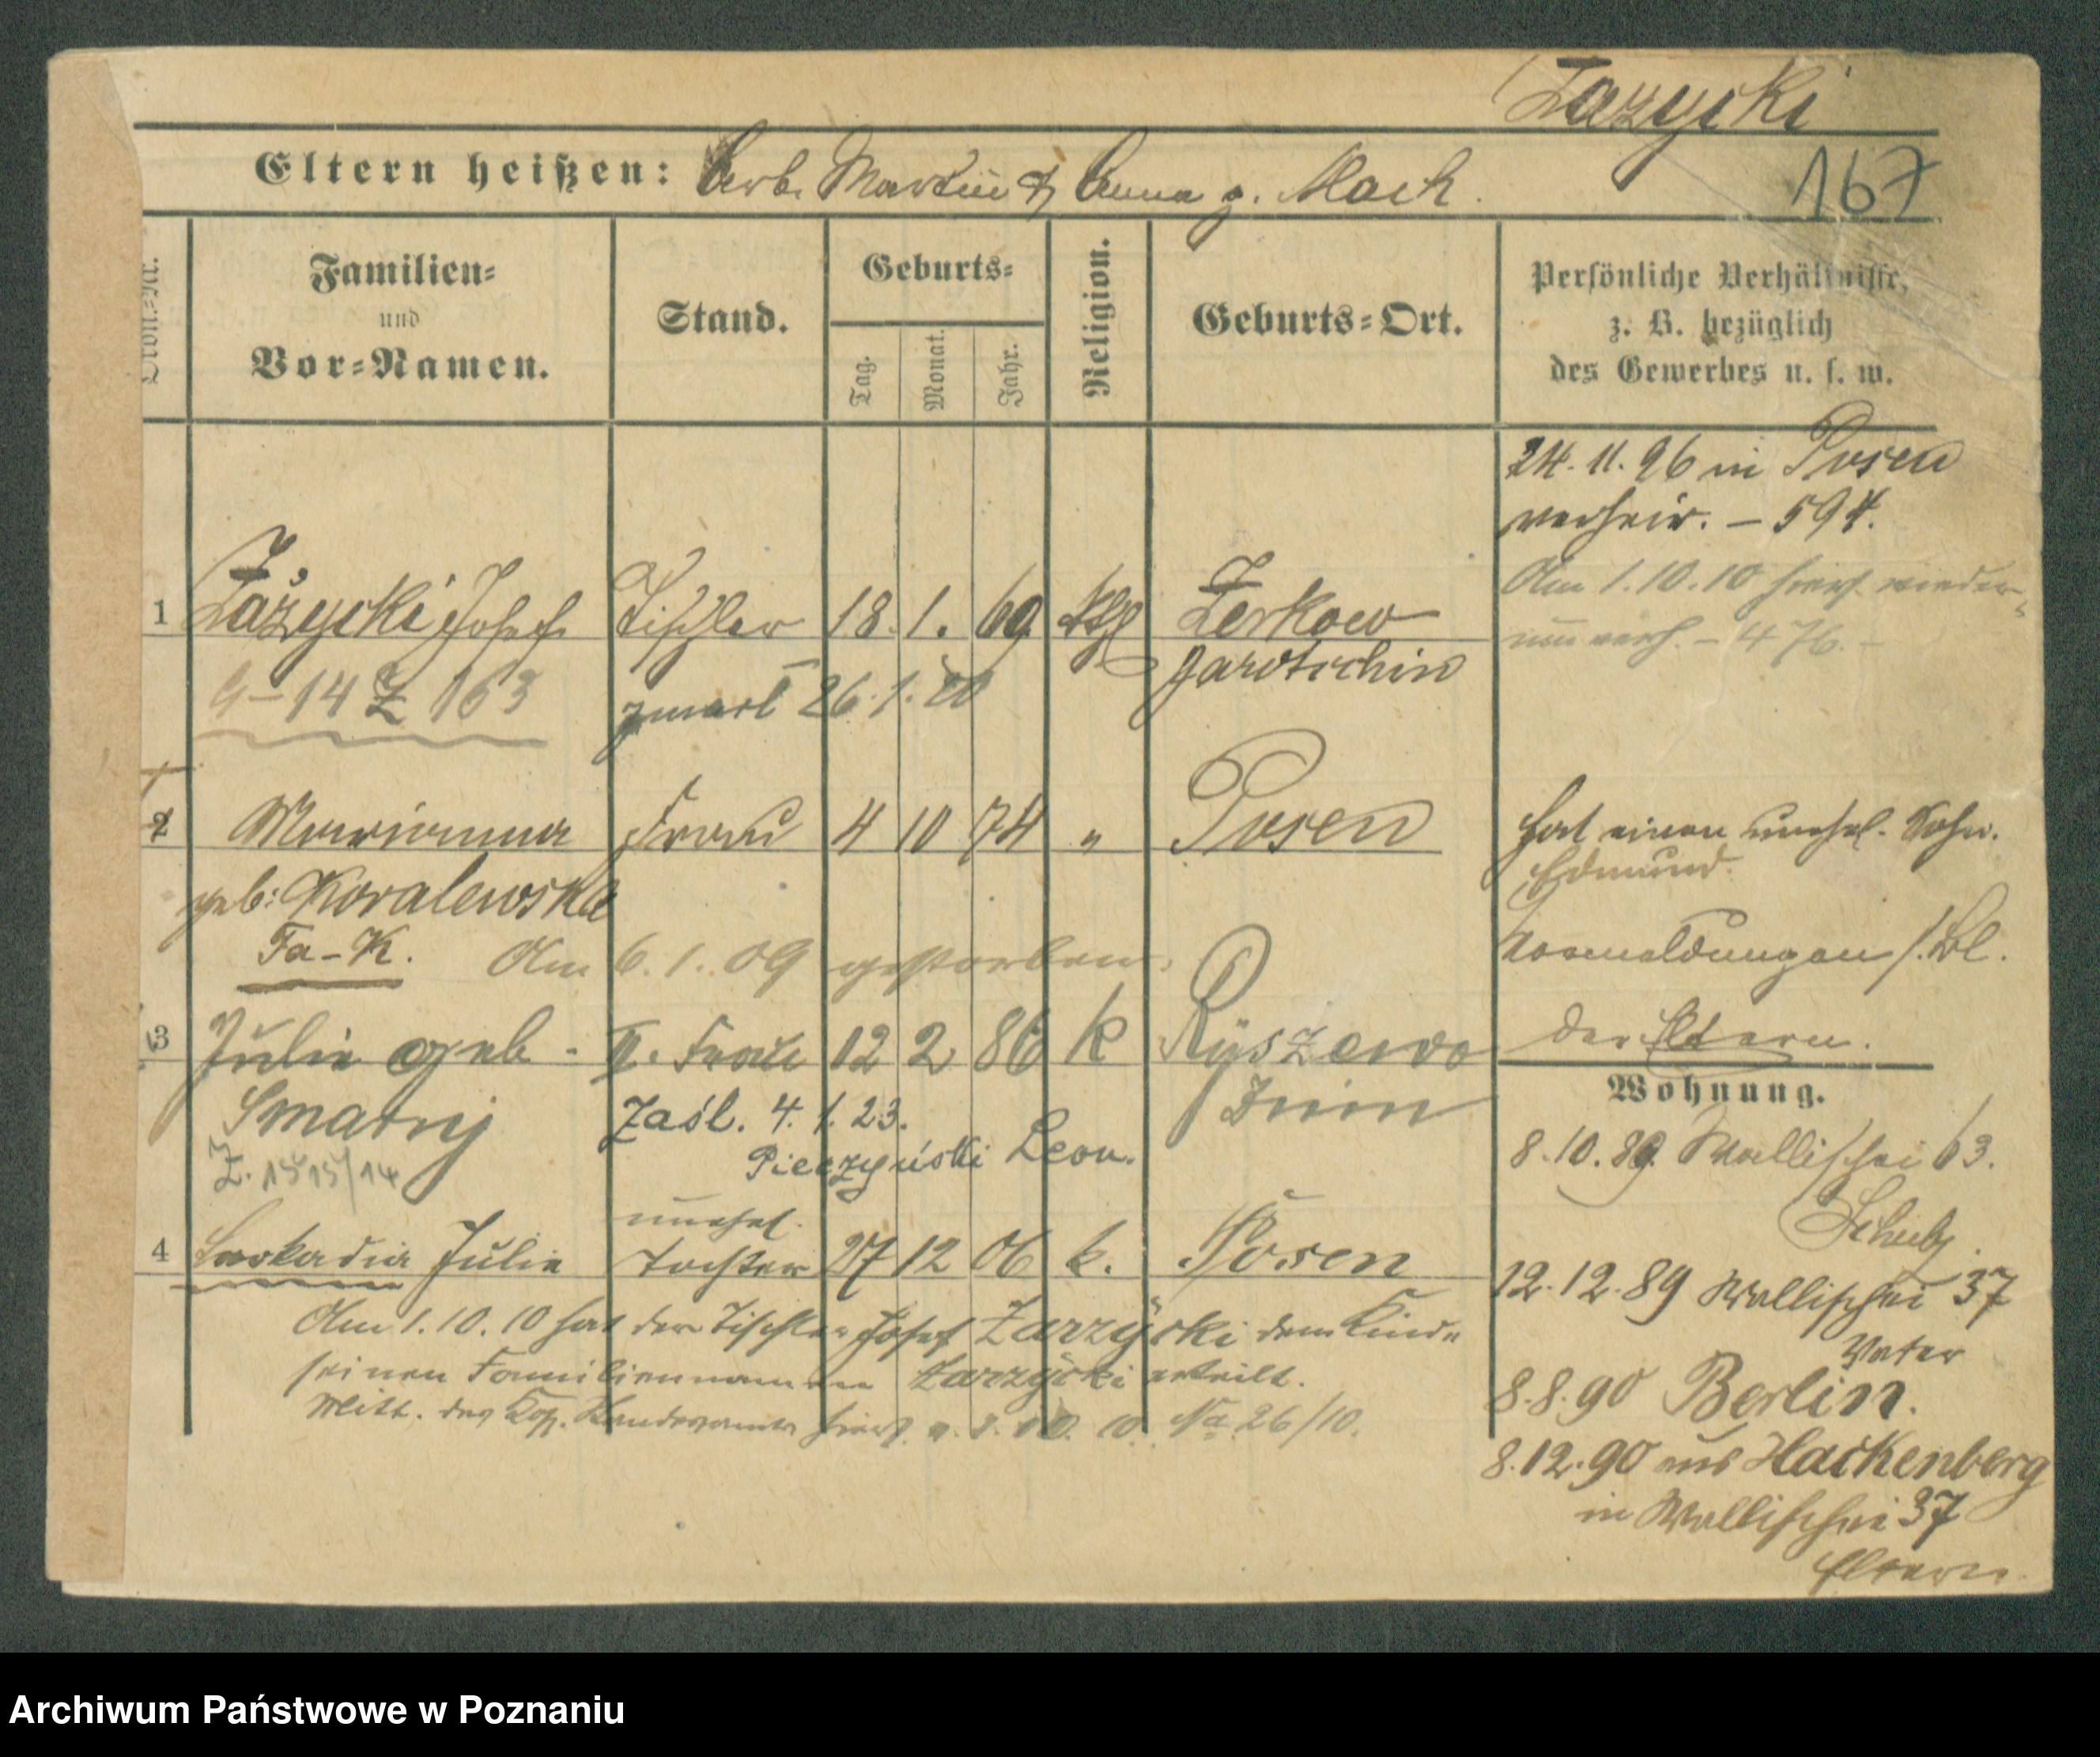 Zazycki
Eltern heißen: Arb. Martin & Anna g. Mach.
167
Familien=
und
Vor=Namen.
Stand.
Geburts=
Tag.
Monat.
Jahr.
Religion.
Geburts=Ort.
Persönliche Verhältnisse,
z. B. bezüglich
des Gewerbes u. s. w.
24. 11. 96 in Posen
verheir. – 594.
Am 1. 10. 10 hier wieder-
um verh. – 476. –
1 Zażycki Josef Tischler 18. 1. 69 Zerkow
Jarotschin
G–14 Z 163 zmarł 26. 1. 20
2 Marianna Frau 4 10 74 " Posen
geb: Kovalewska
Fa–K. Am 6. 1. 09 gestorben.
hat einen unehel. Sohn.
Edmund.
/. Bl.
der Eltern.
3 Julie geb. II. Frau 12 2 86 k Ruszewo
Smatnj Znin
Zaśl. 4. 1. 23.
Pieczyński Leon.
Z. 1515/14
unehel.
4 Leokadia Julie Tochter 27 12 06 k. Posen
Am 1. 10. 10 hat der Tischler Josef Zarzycki dem Kinde
seinen Familiennamen Zarzycki erteilt.
Mitt. des Kgl. Standesamts hier No 26/10.
Wohnung.
8. 10. 89. Wallischei 63.
Schulz
12. 12. 89 Wallischei 37
Vater
8. 8. 90 Berlin.
8. 12. 90 aus Hackenberg
in Wallischei 37
Eltern.
Archiwum Państwowe w Poznaniu